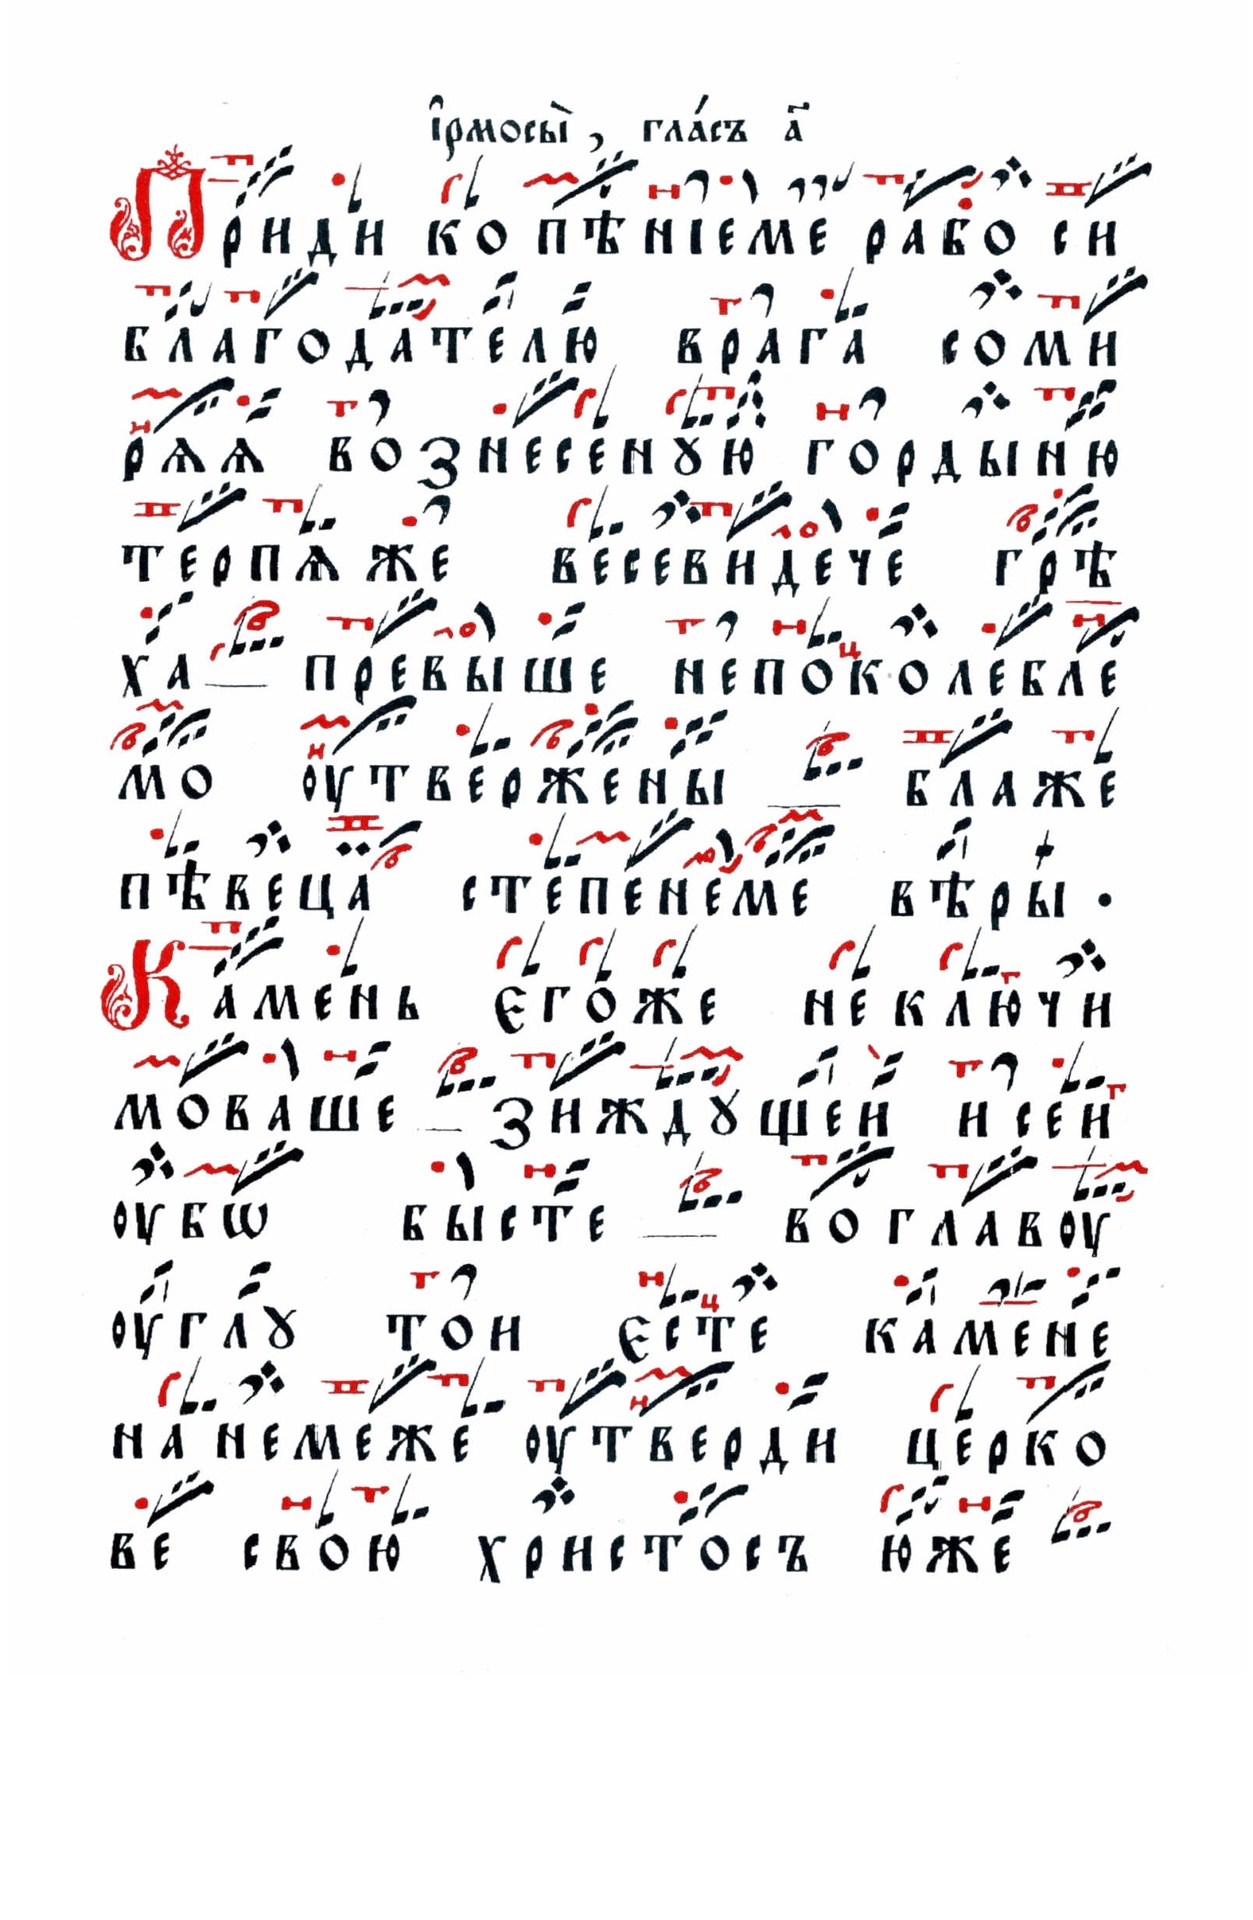 І҆рмосы̀, гла́съ а҃
Приди ко пѣніеме рабо си
благодателю врага соми
рѧѧ вознесеную гордыню
терпѧже весевидече грѣ
ха превыше непоколебле
мо оутвержены блаже
пѣвеца степенеме вѣры.
Камень єгоже неключи
моваше зиждꙋщеи исеи
оубѡ бысте во главоу
оуглꙋ тои єсте камене
на немеже оутверди церко
ве свою христосъ юже